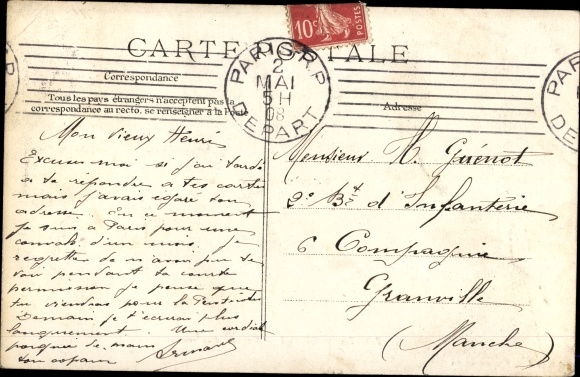 CARTE POSTALE
10c
POSTES
PARIS R.P
2
MAI
5H
08
DEPART
Correspondance
Tous les pays étrangers n'acceptent pas la
correspondance au recto, se renseigner à la Poste
Adresse
Mon vieux Henri
Excuse moi si j'ai tardé
a te répondre a tes cartes
mais j'avais égaré ton
adresse. En ce moment
je suis a Paris pour une
conval. d'un mois. Je
regrette de n'avoir pu te
voir pendant ta courte
permission je pense que
tu viendras pour la Pentecôte
Demain je t'écrirai plus
longuement. Une cordiale
poignée de main
ton copain Armand
Monsieur H. Guénot
2e Bt d'Infanterie
6 Compagnie
Granville
(Manche)
PA
DE
P
T